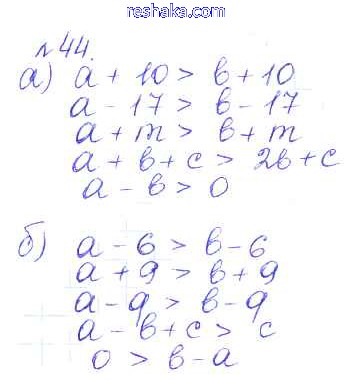 reshaka.com
№44.
а) a + 10 > b + 10
a - 17 > b - 17
a + m > b + m
a + b + c > 2b + c
a - b > 0
б) a - 6 > b - 6
a + 9 > b + 9
a - 9 > b - 9
a - b + c > c
0 > b - a